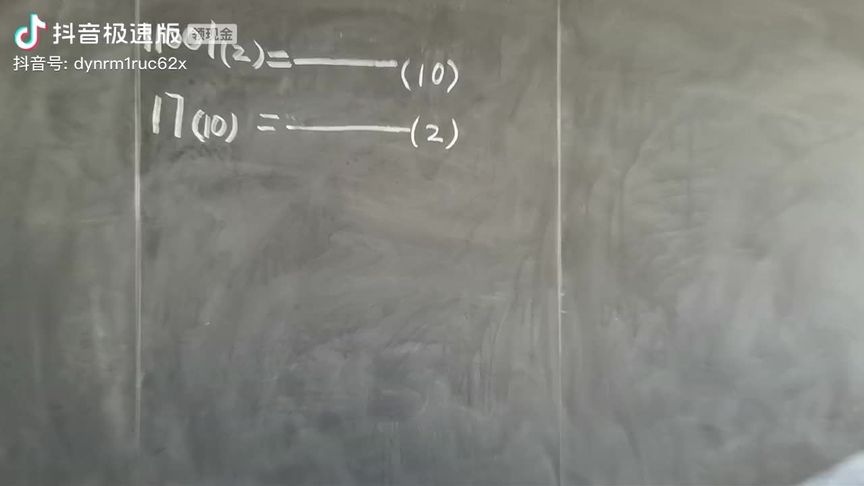 抖音极速版 领现金
抖音号: dynrm1ruc62x
11001(2)=____(10)
17(10)=____(2)